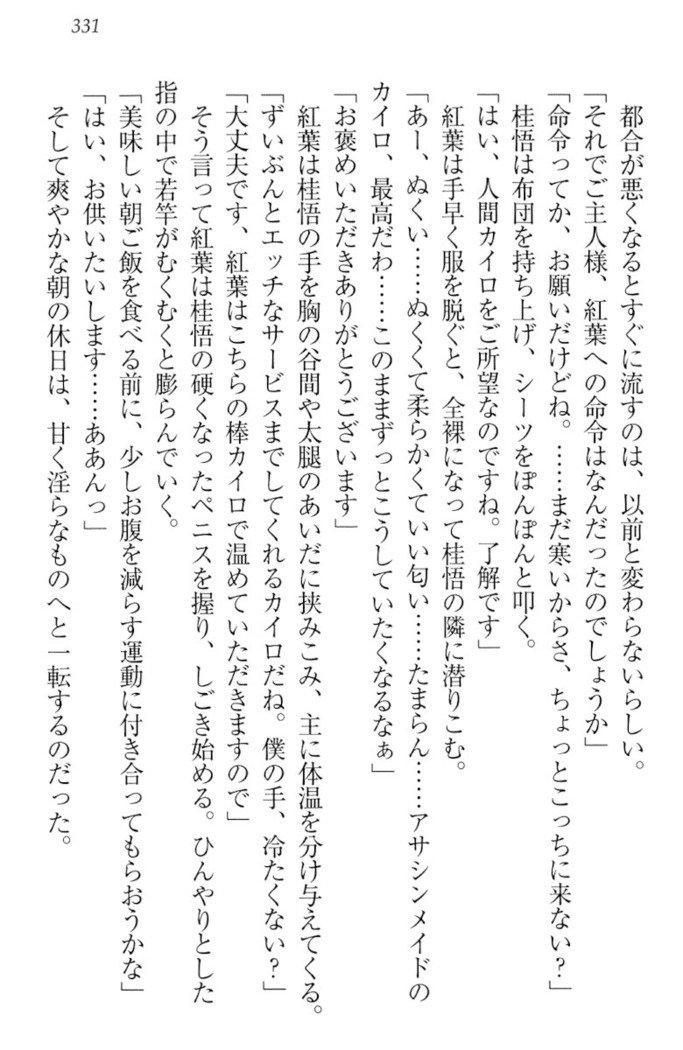 331
都合が悪くなるとすぐに流すのは、以前と変わらないらしい。
「それでご主人様、紅葉への命令はなんだったのでしょうか」
「命令ってか、お願いだけどね。……まだ寒いからさ、ちょっとこっちに来ない？」
桂悟は布団を持ち上げ、シーツをぽんぽんと叩く。
「はい、人間カイロをご所望なのですね。了解です」
紅葉は手早く服を脱ぐと、全裸になって桂悟の隣に潜りこむ。
「あー、ぬくい……ぬくくて柔らかくていい匂い……たまらん……アサシンメイドの
カイロ、最高だわ……このままずっとこうしていたくなるなぁ」
「お褒めいただきありがとうございます」
紅葉は桂悟の手を胸の谷間や太腿のあいだに挟みこみ、主に体温を分け与えてくる。
「ずいぶんとエッチなサービスまでしてくれるカイロだね。僕の手、冷たくない？」
「大丈夫です、紅葉はこちらの棒カイロで温めていただきますので」
そう言って紅葉は桂悟の硬くなったペニスを握り、しごき始める。ひんやりとした
指の中で若竿がむくむくと膨らんでいく。
「美味しい朝ご飯を食べる前に、少しお腹を減らす運動に付き合ってもらおうかな」
「はい、お供いたします……ああんっ」
そして爽やかな朝の休日は、甘く淫らなものへと一転するのだった。